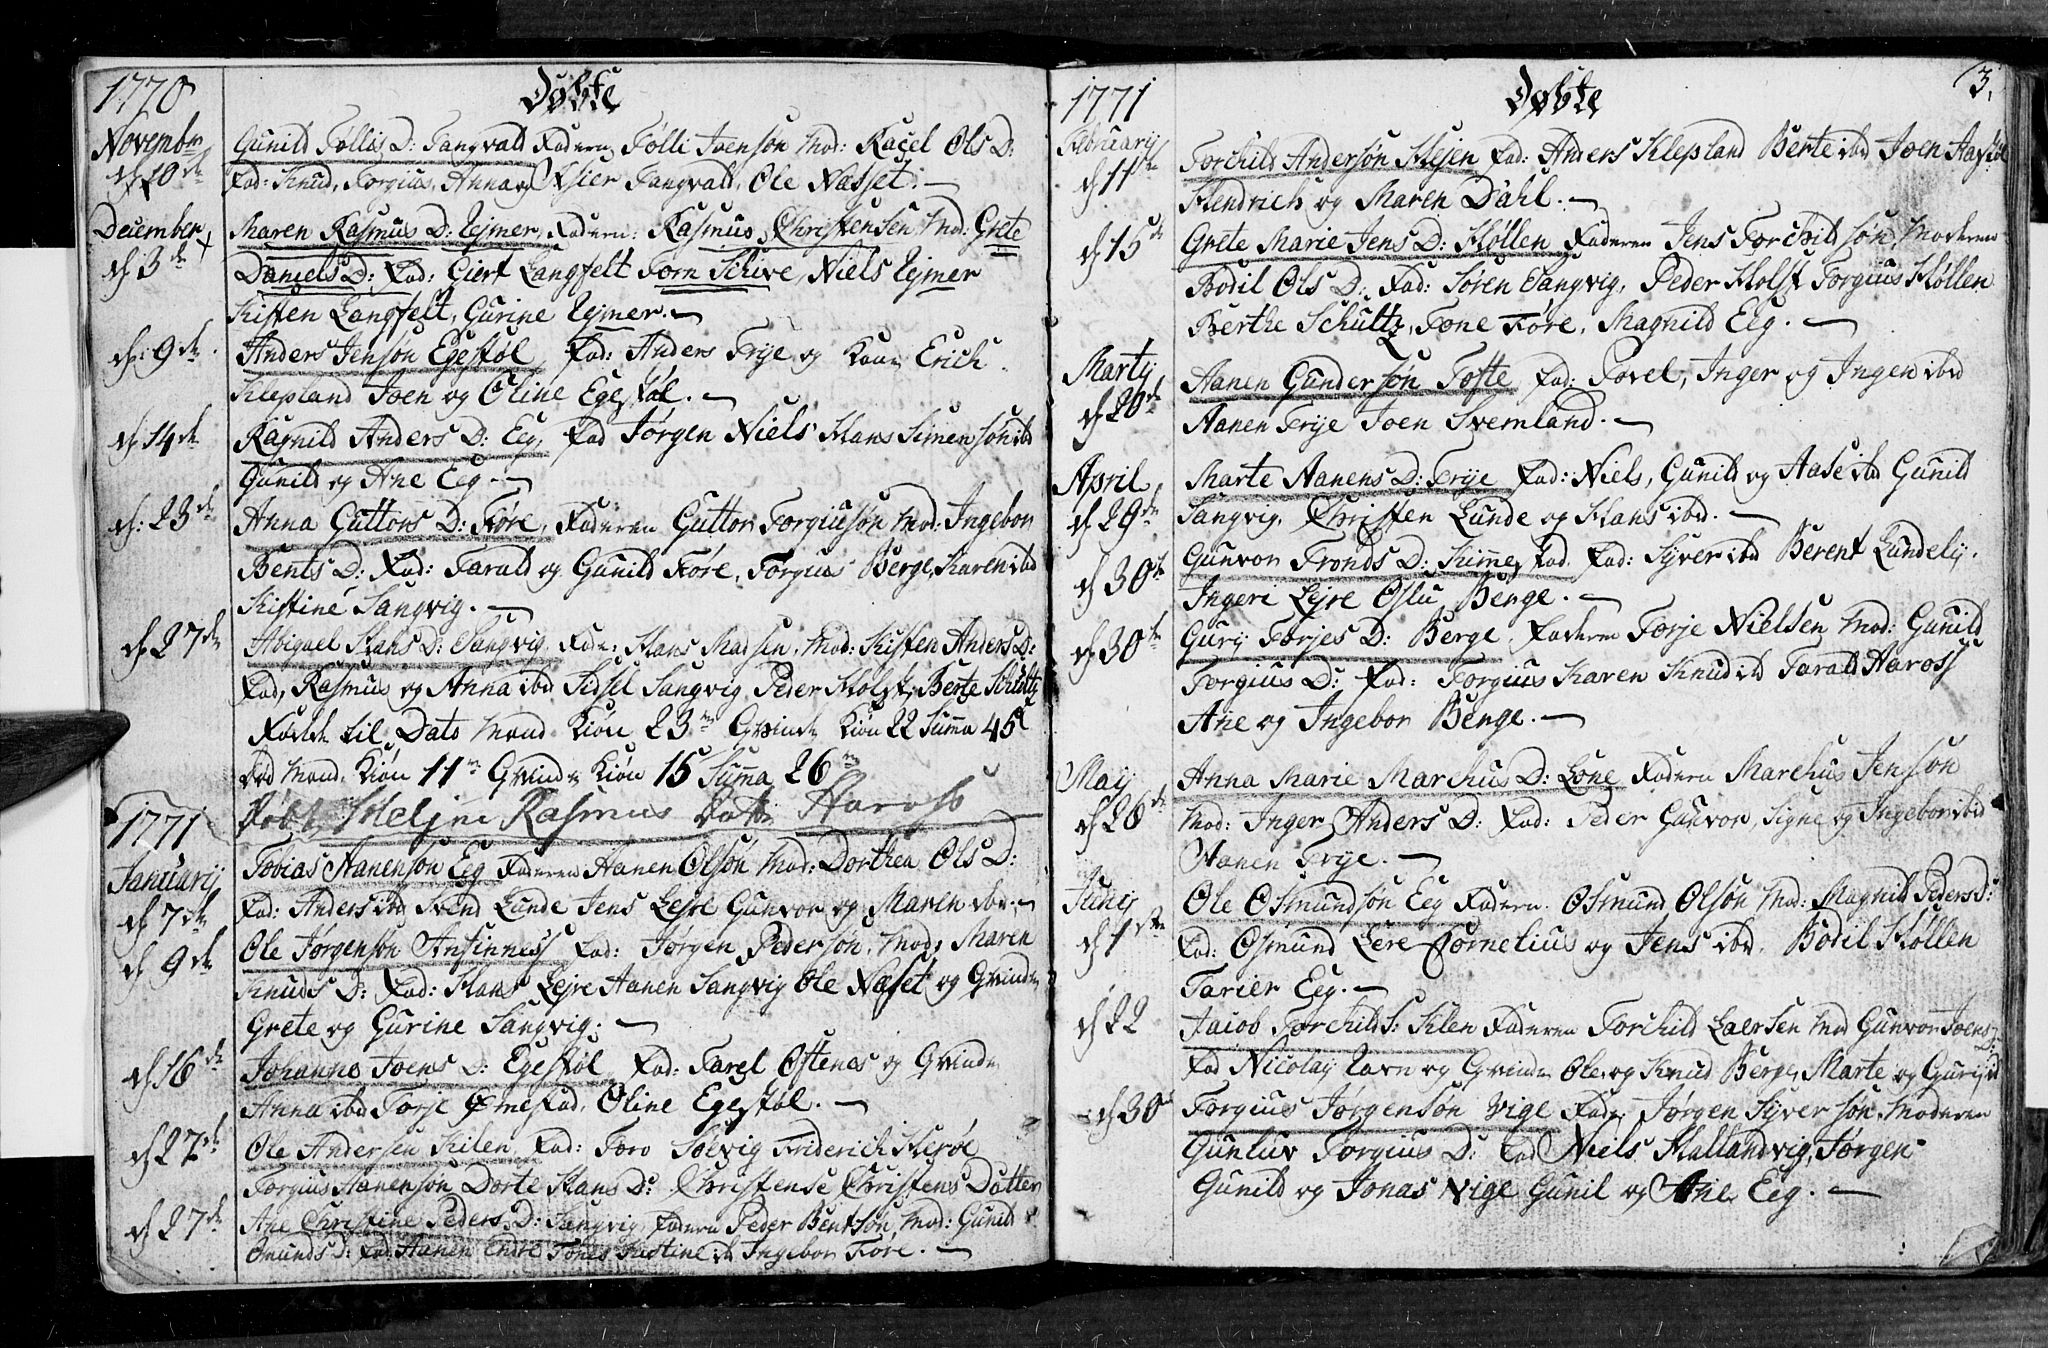 1770
Døbte
Novembr
d 10de
Gunild Tollis D: Tangvald Faderen Tolli Joensøn Mod: Raçel Ols D:
Fad: Knud, Torgius, Anna og Asier Tangvald, Ole Næsset.
December
d 3de
Maren Rasmus D: Ejmer, Faderen: Rasmus Christensen Mod: Grete
Daniels D: Fad: Giert Langfelt Torn Schive, Niels Ejmer
Kisten Langfelt, Gurine Ejmer.
d: 9de
Anders Jensøn Egestøl, Fad: Anders Frye og Kone Erich
Klepland Joen og Oline Egestøl.
d 14de
Ragnild Anders D: Eeg, Fad Jørgen Niels Hans Simensøn ibd
Gunild og Ane Eeg.
d: 23de
Anna Guttors D: Føre, Faderen Guttor Torgiusøn Mod: Ingebor
Bents D: Fad: Tarald og Gunild Føre, Torgius Berge, Karen ibd
Kistine Sangvig.
d 27de
Abigael Hans D: Sangvig, Fader: Hans Madsen, Mod: Kisten Anders D:
Fad, Rasmus og Anna ibd Sidsel Sangvig Peder Holst, Berte Schültz
Fødde til Dato Mand Kiøn 23 Qvinde Kiøn 22 Summa 45
Død Mand. Kiøn 11 Qvinde Kiøn 15 Summa 26
Døbt Heljne Rasmus Datter Haaross
1771
Januarij
d 7de
Tovias Aanensøn Eeg Faderen Aanen Olsøn Mod: Dorthea Ols D:
Fad: Anders ibd Svend Lunde Jens Lejre Gunvor og Maren ibd.
d 9de
Ole Jørgensøn Ansinnes Fad: Jørgen Pedersøn, Mod: Maren
Knuds D: Fad: Hans Lejre Aanen Sangvig Ole Næset og Qvinde
Grete og Gurine Sangvig.
d 16de
Johanne Joens D: Egestøl, Fad: Tarel Ostenes og Qvinde
Anna ibd Torje Omestad, Oline Egestøl.
d 27de
Ole Andersen Kilen, Fad: Toro Søevig Friderich Herøe
Torgius Hanensøn Dorte Hans D: Christense Christens Datter
d 27de
Ane Christine Peders D: Sangvig, Faderen Peder Bentsøn, Mod: Gunild
Omunds D: Fad: Aanen Endre Tones Justine ibd Ingebor Føre.
1771
Døbte
3.
Februarij
d 11te
Torchild Andersøn Hejen Fad: Anders Klepland Berte ibd Joen
Hendrich og Maren Dahl.
d 15de
Grete Marie Jens D: Høllen Faderen Jens Torchildsøn, Moderen
Bodil Ols D: Fad: Søren Sangvig, Peder Holst Torgius Høllen
Berthe Schültz, Tone Føre, Magnild Eeg.
Martij
d 20de
Aanen Gundersøn Tofte Fad: Povel, Inger og Ingen ibd
Aanen Frye Joen Svemland.
April
d 29de
Marte Aanens D: Frye Fad: Niels, Gunild og Aase ibd Gunild
Sangvig, Christen Lunde og Hans ibd.
d 30te
Gunvor Tronds D: Kime, Fad. Fad: Syver ibd Berent Lundelj,
Ingeri Lejre Oslu Berge.
d 30te
Gurj Torjes D: Berge, Faderen Torje Nielsen Mod: Gunild
Torgius D: Fad: Torgius Karen Knud ibd Tarald Aaross
Ane og Ingebor Berge.
Maij
d 26de
Anna Marie Marchus D: Lone Faderen Marchus Jensøn
Mod: Inger Anders D: Fad: Peder Gunvor, Signe og Ingebor ibd
Aanen Frye.
Junij
d 1ste
Ole Osmundsøn Eeg Faderen Osmund Olsøn Mod: Magnild Peders D:
Fad: Osmund Lere Cornelius og Jens ibd, Bodil Høllen
Tarier Eeg.
d 22
Jacob Torchild S: Kilen Faderen Torchild Laersen Mod Gunvor Joens D:
Fad Nicolay Ravn og Qvinde Ole og Knud Berge, Marte og Guri ibd
d 30
Torgius Jørgensøn Vige Fader Jørgen Syversøn, Moderen
Gunluv Torgius D: Fad Niels Hallandvig, Jørgen
Gunild og Jonas Vige Gunil og Ane Eeg.